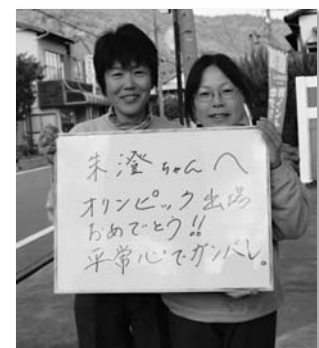 朱澄ちゃんへ
オリンピック出場
おめでとう!!
平常心でガンバレ。